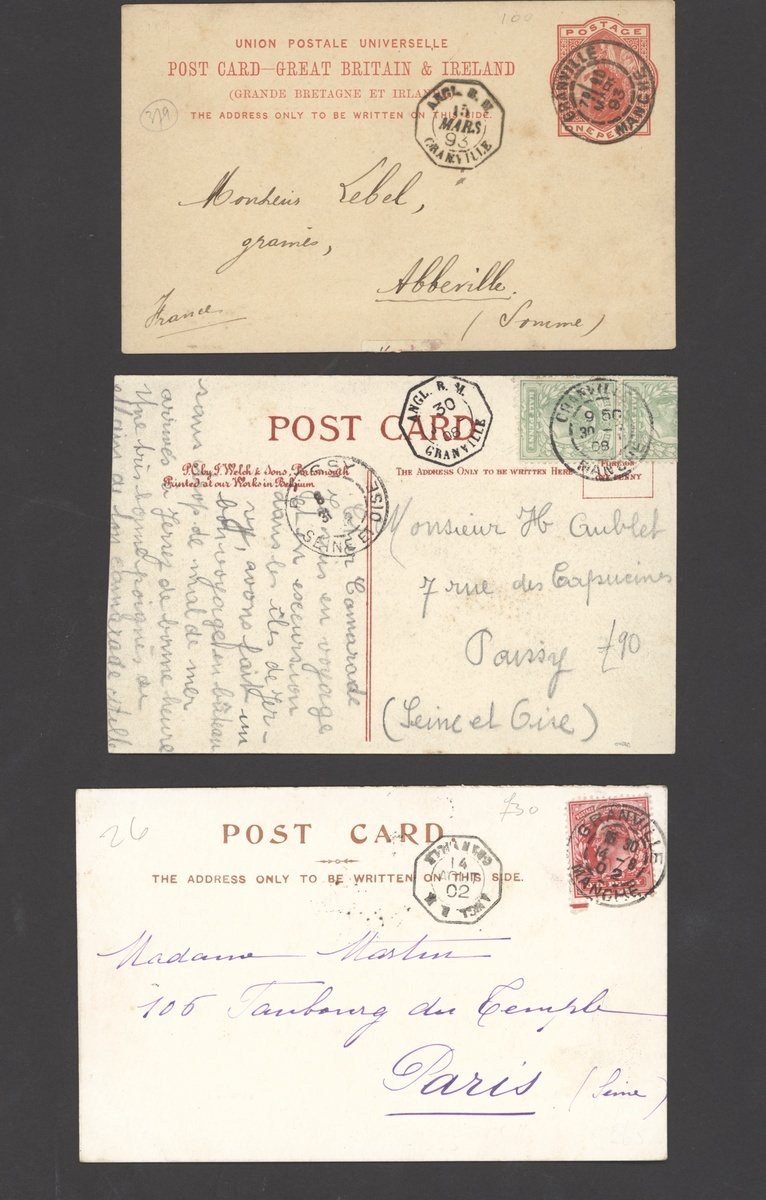 100
UNION POSTALE UNIVERSELLE
POST CARD—GREAT BRITAIN & IRELAND
(GRANDE BRETAGNE ET IRLAN
THE ADDRESS ONLY TO BE WRITTEN ON THIS SIDE.
379
ANGL. B. M.
15
MARS
93
GRANVILLE
POSTAGE
ONE PE
GRANVILLE
93
MANCHE
Monsieur Lebel,
Abbeville.
(Somme)
France
POST CARD
P.C. by F. Welch & Sons, Portsmouth
Printed at our Works in Belgium
THE ADDRESS ONLY TO BE WRITTEN HERE
FOREIGN
ONE PENNY
ANGL. B. M.
30
08
GRANVILLE
GRANVILLE
30
08
MANCHE
SEINE ET OISE
Cher Camarade
Je suis en voyage
et en excursion
dans les îles de Jer-
sey, avons fait un
bon voyage en bateau
sans trop de mal de mer
arrivés à Jersey de bonne heure
Une très bonne poignée de
main de ton camarade
Monsieur H Aublet
7 rue des Capucines
Poissy
£90
(Seine et Oise)
26
£30
POST CARD
THE ADDRESS ONLY TO BE WRITTEN ON THIS SIDE.
GRANVILLE
14
AOUT
02
ANGL. B. M.
GRANVILLE
MANCHE
Madame Martin
106 Faubourg du Temple
Paris
(Seine)